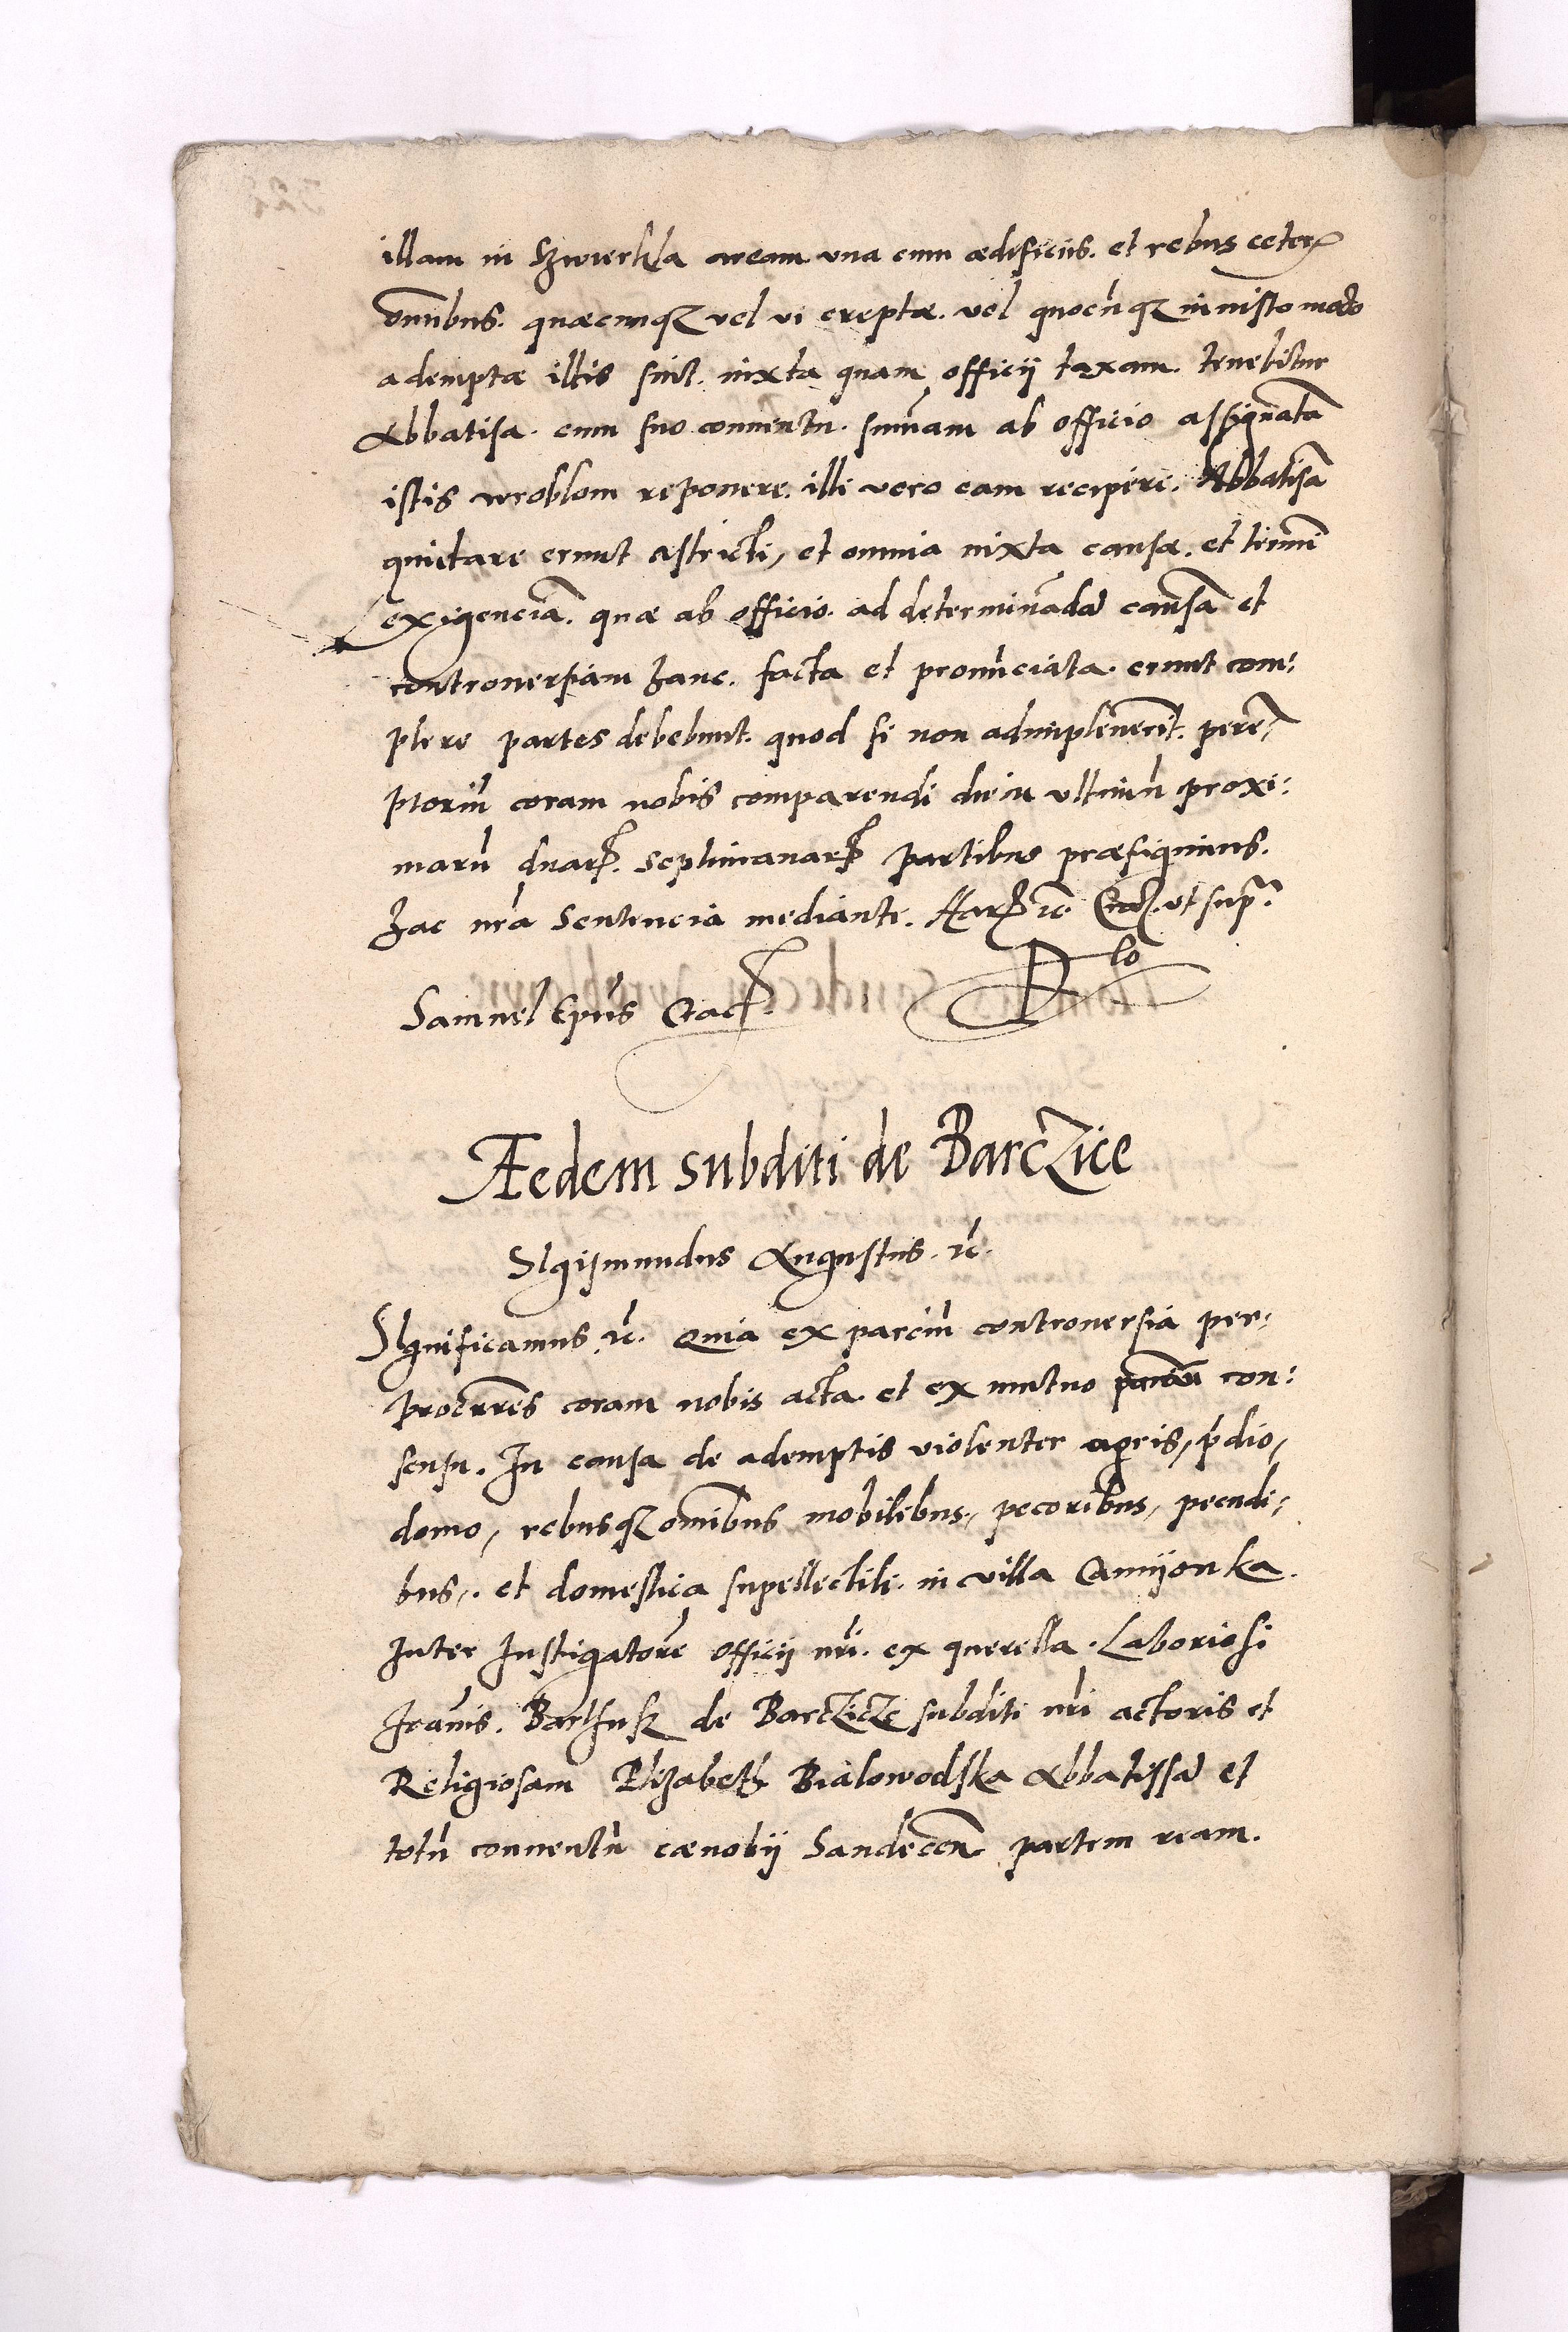 illam in Szwierkla aream vna cum ædificiis. et rebus ceteris
om̃ibus. quæcunqʒ vel vi ereptæ. vel quocũqʒ iniusto modo
ademptæ illis sint. iuxta quam officij taxam. tenebitur
Abbatisa. cum suo conuentu. sum̃am ab officio assignatã
istis wroblom reponere. illi vero eam recipere. Abbatisã
quietare erunt astricti, et omnia iuxta causæ. et
exigenciã. quæ ab officio. ad determinãdã causã et
controuersiam hanc. facta et pronũciata. erunt com:
plere partes debebunt. quod si non adimpleuerĩt. perẽ,
ptoriũ coram nobis comparendi diem vltimũ proxi:
marũ duarꝝ. septimanarꝝ partibus præfigimus.
hac nr̃a Sentencia mediante. Harꝝ ꝛc̃. vt supr̃.
Samuel Ep̃us Crac̃.
Aedem subditi de Barczice
SIgismundus Augustus. ꝛc̃.
SIgnificamus. ꝛc̃. Quia ex parciũ controuersia per,
procur̃res coram nobis acta. et ex mutuo parciũ con:
sensu. In causa de ademptis violenter agris, p̃dio,
domo, rebusqʒ om̃ibus mobilibus, pecoribus, pecudi,
bus,. et domestica supellectili. in villa Camijonka.
Inter Instigatorẽ officij nr̃i. ex querella. Laboriosi
Ioãnis. Barthusk de Barczicze subditi nr̃i actoris et
Religiosam Elizabeth Bialowodska Abbatissã et
totũ conuentũ cænobij Sandecen̄ partem ream.